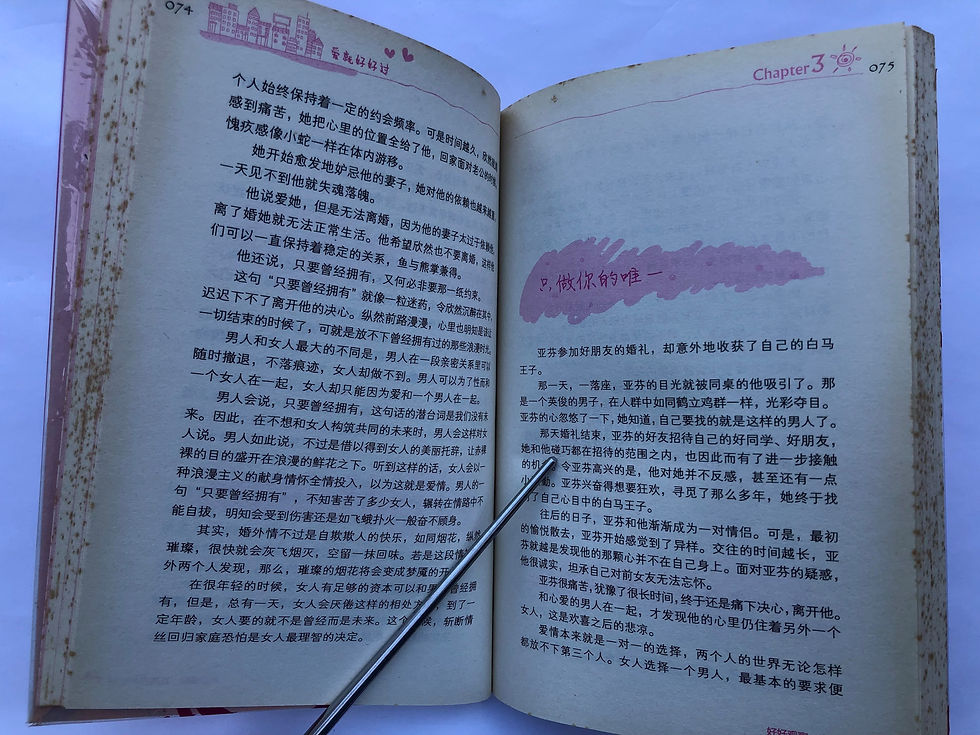 074
爱就好好过
个人始终保持着一定的约会频率。可是时间越久，欣然越
感到痛苦，她把心里的位置全给了他，回家面对老公的时候，
愧疚感像小蛇一样在体内游移。
她开始愈发地妒忌他的妻子，她对他的依赖也越来越重，
一天见不到他就失魂落魄。
他说爱她，但是无法离婚，因为他的妻子太过于依赖他，
离了婚她就无法正常生活。他希望欣然也不要离婚，这样他
们可以一直保持着稳定的关系，鱼与熊掌兼得。
他还说，只要曾经拥有，又何必非要那一纸约束。
这句“只要曾经拥有”就像一粒迷药，令欣然沉醉在其中，
迟迟下不了离开他的决心。纵然前路漫漫，心里也明知是该
一切结束的时候了，可就是放不下曾经拥有过的那些浪漫时光。
男人和女人最大的不同是，男人在一段亲密关系里可以
随时撤退，不落痕迹，女人却做不到。男人可以为了性而和
一个女人在一起，女人却只能因为爱和一个男人在一起。
男人会说，只要曾经拥有，这句话的潜台词是我们没有未
来。因此，在不想和女人构筑共同的未来时，男人会这样对女
人说。男人如此说，不过是借以得到女人的美丽托辞，让赤裸
裸的目的盛开在浪漫的鲜花之下。听到这样的话，女人会以一
种浪漫主义的献身情怀全情投入，以为这就是爱情。男人的一
句“只要曾经拥有”，不知害苦了多少女人，辗转在情路中不
能自拔，明知会受到伤害还是如飞蛾扑火一般奋不顾身。
其实，婚外情不过是自欺欺人的快乐，如同烟花，纵然
璀璨，很快就会灰飞烟灭，空留一抹回味。若是这段情
外两个人发现，那么，璀璨的烟花将会变成梦魇的开
在很年轻的时候，女人有足够的资本可以和男 曾经拥
有，但是，总有一天，女人会厌倦这样的相处方 到了一
定年龄，女人要的就不是曾经而是未来。这个 候，斩断情
丝回归家庭恐怕是女人最理智的决定。
Chapter 3
075
只做你的唯一
亚芬参加好朋友的婚礼，却意外地收获了自己的白马
王子。
那一天，一落座，亚芬的目光就被同桌的他吸引了。那
是一个英俊的男子，在人群中如同鹤立鸡群一样，光彩夺目。
亚芬的心忽悠了一下，她知道，自己要找的就是这样的男人了。
那天婚礼结束，亚芬的好友招待自己的好同学、好朋友，
她和他碰巧都在招待的范围之内，也因此而有了进一步接触
的机 令亚芬高兴的是，他对她并不反感，甚至还有一点
小 勤。亚芬兴奋得想要狂欢，寻觅了那么多年，她终于找
了自己心目中的白马王子。
往后的日子，亚芬和他渐渐成为一对情侣。可是，最初
的愉悦散去，亚芬开始感觉到了异样。交往的时间越长，亚
芬就越是发现他的那颗心并不在自己身上。面对亚芬的疑惑，
他很诚实，坦承自己对前女友无法忘怀。
亚芬很痛苦，犹豫了很长时间，终于还是痛下决心，离开他。
和心爱的男人在一起，才发现他的心里仍住着另外一个
女人，这是欢喜之后的悲凉。
爱情本来就是一对一的选择，两个人的世界无论怎样
都放不下第三个人。女人选择一个男人，最基本的要求便